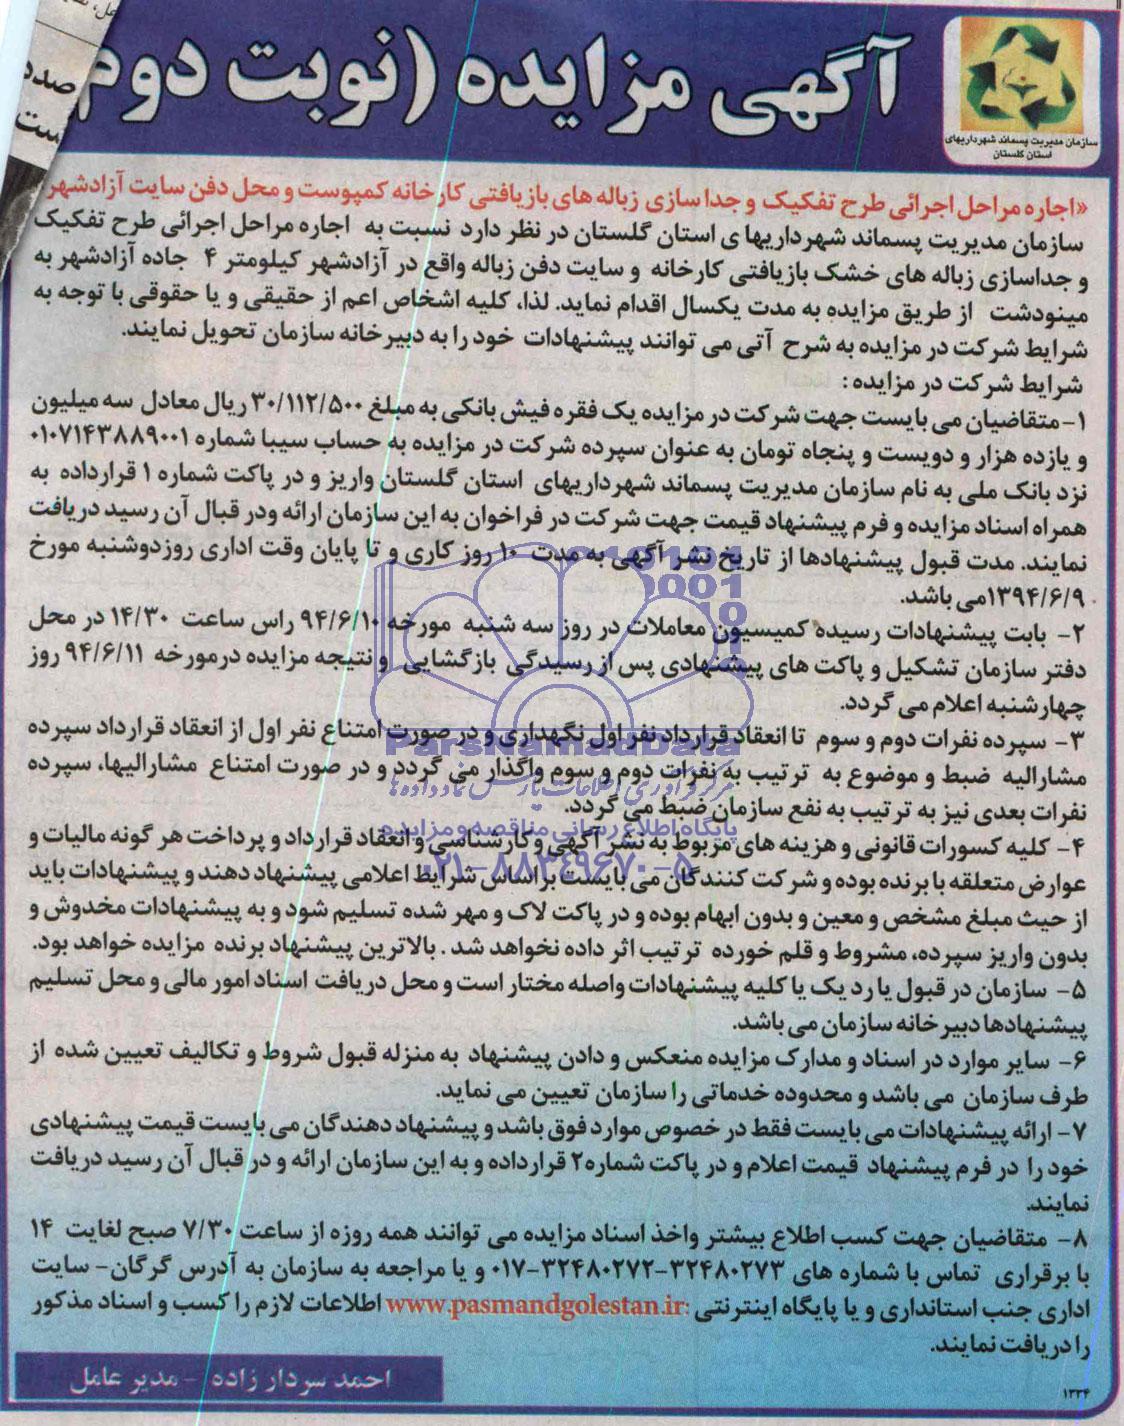 آگهی مزایده (نوبت دوم)
سازمان مدیریت پسماند شهرداریهای
استان گلستان
«اجاره مراحل اجرائی طرح تفکیک و جداسازی زباله های بازیافتی کارخانه کمپوست و محل دفن سایت آزادشهر»
سازمان مدیریت پسماند شهرداریها ی استان گلستان در نظر دارد نسبت به اجاره مراحل اجرائی طرح تفکیک
و جداسازی زباله های خشک بازیافتی کارخانه و سایت دفن زباله واقع در آزادشهر کیلومتر ۴ جاده آزادشهر به
مینودشت از طریق مزایده به مدت یکسال اقدام نماید. لذا، کلیه اشخاص اعم از حقیقی و یا حقوقی با توجه به
شرایط شرکت در مزایده به شرح آتی می توانند پیشنهادات خود را به دبیرخانه سازمان تحویل نمایند.
شرایط شرکت در مزایده :
۱- متقاضیان می بایست جهت شرکت در مزایده یک فقره فیش بانکی به مبلغ ۳۰/۱۱۲/۵۰۰ ریال معادل سه میلیون
و یازده هزار و دویست و پنجاه تومان به عنوان سپرده شرکت در مزایده به حساب سیبا شماره ۰۱۰۷۱۴۳۸۸۹۰۰۱
نزد بانک ملی به نام سازمان مدیریت پسماند شهرداریهای استان گلستان واریز و در پاکت شماره ۱ قرارداده به
همراه اسناد مزایده و فرم پیشنهاد قیمت جهت شرکت در فراخوان به این سازمان ارائه ودر قبال آن رسید دریافت
نمایند. مدت قبول پیشنهادها از تاریخ نشر آگهی به مدت ۱۰ روز کاری و تا پایان وقت اداری روزدوشنبه مورخ
۱۳۹۴/۶/۹می باشد.
۲- بابت پیشنهادات رسیده کمیسیون معاملات در روز سه شنبه مورخه ۹۴/۶/۱۰ راس ساعت ۱۴/۳۰ در محل
دفتر سازمان تشکیل و پاکت های پیشنهادی پس از رسیدگی بازگشایی و نتیجه مزایده درمورخه ۹۴/۶/۱۱ روز
چهارشنبه اعلام می گردد.
۳- سپرده نفرات دوم و سوم تا انعقاد قرارداد نفر اول نگهداری و در صورت امتناع نفر اول از انعقاد قرارداد سپرده
مشارالیه ضبط و موضوع به ترتیب به نفرات دوم و سوم واگذار می گردد و در صورت امتناع مشارالیها، سپرده
نفرات بعدی نیز به ترتیب به نفع سازمان ضبط می گردد.
۴- کلیه کسورات قانونی و هزینه های مربوط به نشر آگهی و کارشناسی و انعقاد قرارداد و پرداخت هر گونه مالیات و
عوارض متعلقه با برنده بوده و شرکت کنندگان می بایست براساس شرایط اعلامی پیشنهاد دهند و پیشنهادات باید
از حیث مبلغ مشخص و معین و بدون ابهام بوده و در پاکت لاک و مهر شده تسلیم شود و به پیشنهادات مخدوش و
بدون واریز سپرده، مشروط و قلم خورده ترتیب اثر داده نخواهد شد . بالاترین پیشنهاد برنده مزایده خواهد بود.
۵- سازمان در قبول یا رد یک یا کلیه پیشنهادات واصله مختار است و محل دریافت اسناد امور مالی و محل تسلیم
پیشنهادها دبیرخانه سازمان می باشد.
۶- سایر موارد در اسناد و مدارک مزایده منعکس و دادن پیشنهاد به منزله قبول شروط و تکالیف تعیین شده از
طرف سازمان می باشد و محدوده خدماتی را سازمان تعیین می نماید.
۷- ارائه پیشنهادات می بایست فقط در خصوص موارد فوق باشد و پیشنهاد دهندگان می بایست قیمت پیشنهادی
خود را در فرم پیشنهاد قیمت اعلام و در پاکت شماره۲ قرارداده و به این سازمان ارائه و در قبال آن رسید دریافت
نمایند.
۸- متقاضیان جهت کسب اطلاع بیشتر واخذ اسناد مزایده می توانند همه روزه از ساعت ۷/۳۰ صبح لغایت ۱۴
با برقراری تماس با شماره های ۳۲۴۸۰۲۷۳-۳۲۴۸۰۲۷۲-۰۱۷ و یا مراجعه به سازمان به آدرس گرگان- سایت
اداری جنب استانداری و یا پایگاه اینترنتی :www.pasmandgolestan.ir اطلاعات لازم را کسب و اسناد مذکور
را دریافت نمایند.
احمد سردار زاده - مدیر عامل
۱۳۳۴
ParsNamadData
مرکز فرآوری اطلاعات پارس نماد داده ها
پایگاه اطلاع رسانی مناقصه و مزایده
۰۲۱-۸۸۳۴۹۶۷۰-۵